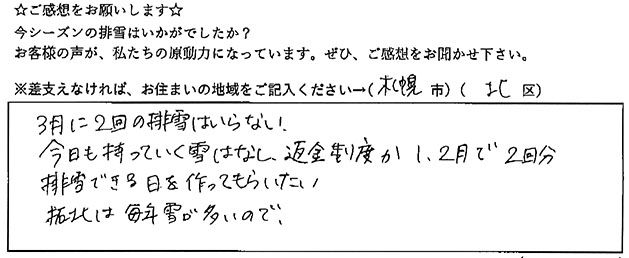 ☆ご感想をお願いします☆
今シーズンの排雪はいかがでしたか？
お客様の声が、私たちの原動力になっています。ぜひ、ご感想をお聞かせ下さい。
※差支えなければ、お住まいの地域をご記入ください→（ 札幌 市）（ 北 区）
3月に2回の排雪はいらない!
今日も持っていく雪はなし、返金制度か1、2月で2回分
排雪できる日を作ってもらいたい
拓北は毎年雪が多いので、